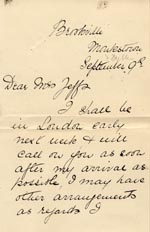 Brookville
Monkstown
September 9th
Dear Mrs Jeffs
I shall be
in London early
next week & will
call on you as soon
after my arrival as
possible I may have
other arrangements
as regards I